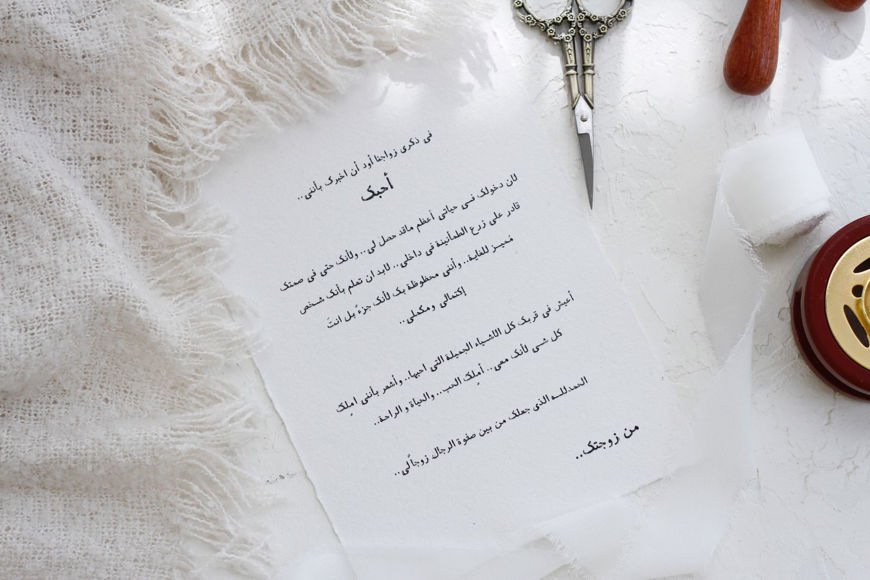 في ذكرى زواجنا أود أن اخبرك بأنني..
أحبك
لان دخولك فسي حياتي أعظم ماقد حصل لي.. ولأنك حتى في صمتك
قادر على زرع الطمأنينة في داخلي.. لابد ان تعلم بأنك شخص
مُميـز للغاية.. وأنني محظوظة بك لأنك جزءٌ بل انتَ
إكتمالي ومكملي..
أعيش في قربك كل الأشياء الجميلة التي احبها.. وأشعر بأنني املك
كل شيء لأنك معي.. أملك الحب.. والحياة و الراحة..
الحمدللـه الذي جعلك من بين صفوة الرجال زوجاً لي..
من زوجتك..